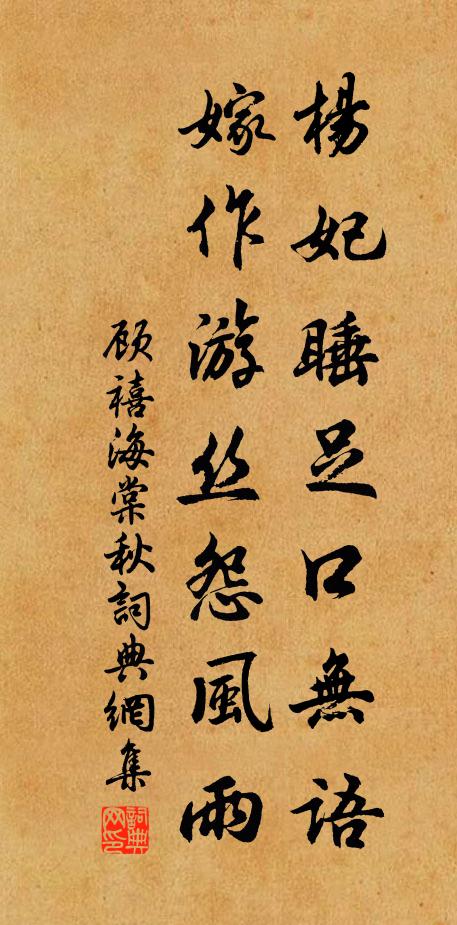 楊妃睡足口無語
嫁作游丝怨風雨
顾禧海棠秋詞典網集
詞典网印